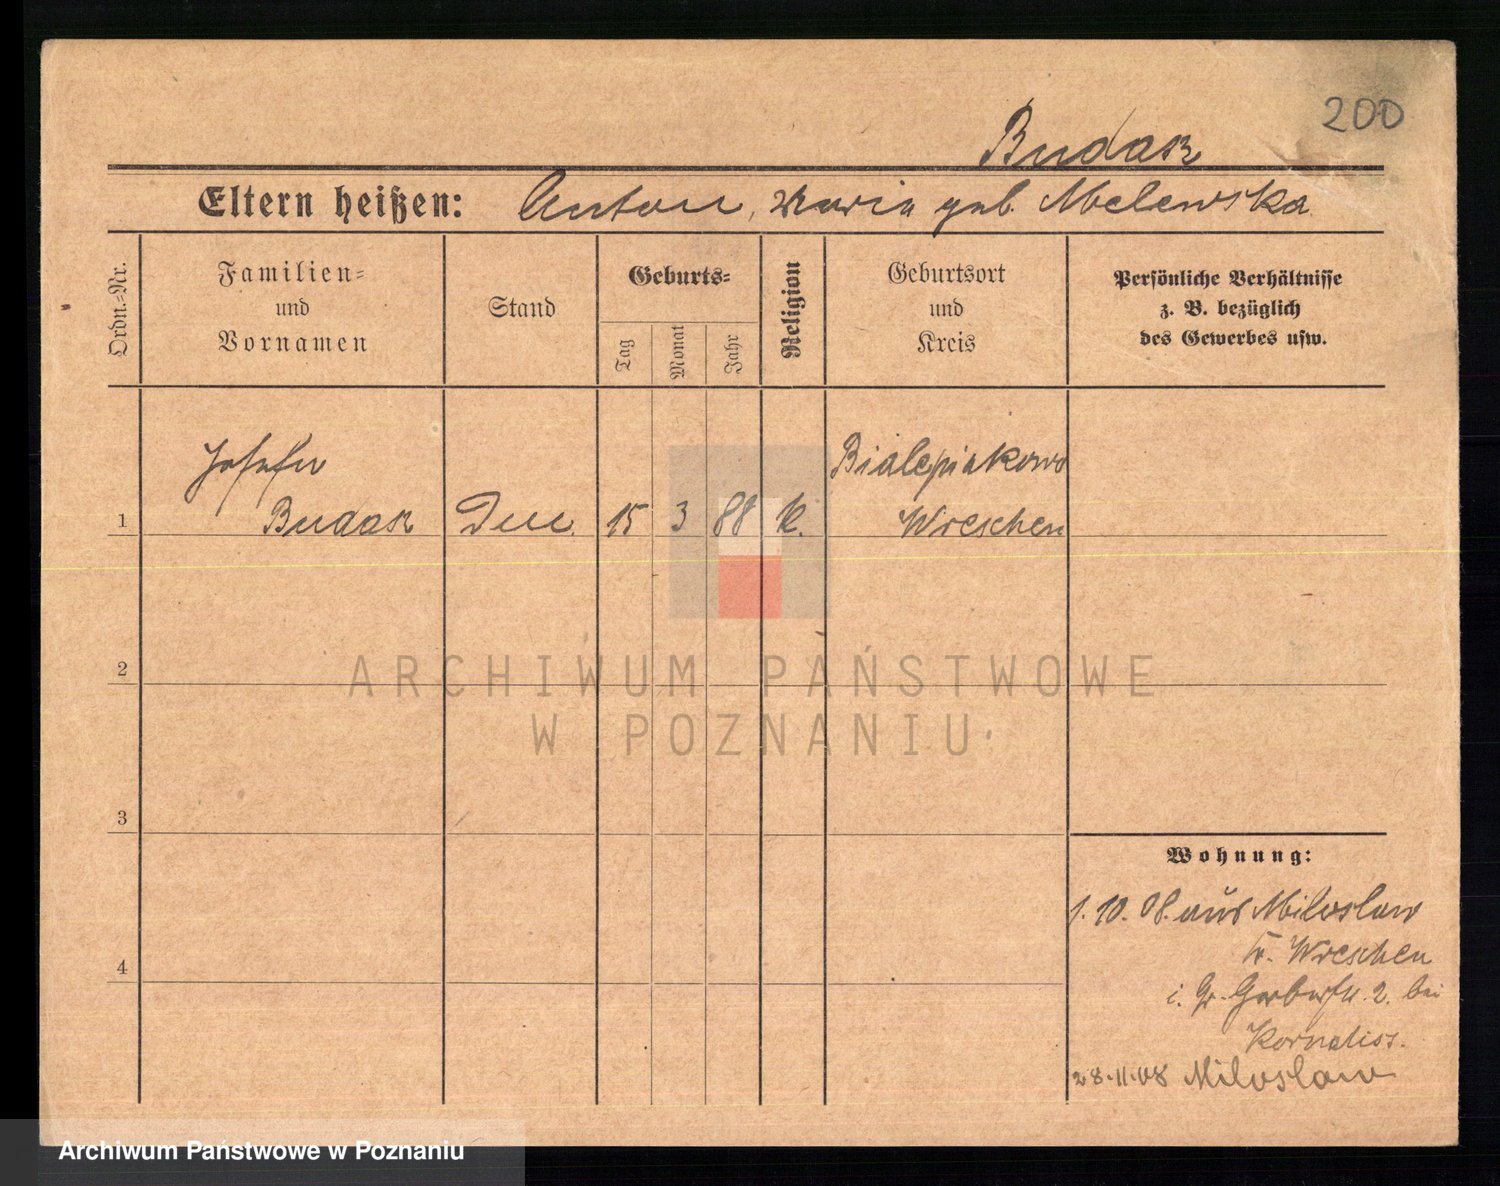 200
Budasz
Eltern heißen: Anton, Maria geb. Melewska
Ordn.=Nr.
Familien=
und
Vornamen
Stand
Geburts=
Tag
Monat
Jahr
Religion
Geburtsort
und
Kreis
Persönliche Verhältnisse
z. B. bezüglich
des Gewerbes usw.
Josefa Bialepiatkowo
1 Budasz 15 3 88 k. Wreschen
2
3
4
Wohnung:
1. 10. 08. aus Miloslaw
Kr. Wreschen
i. Gr. Gerberstr. 2. bei
28.11.08 Miloslaw
ARCHIWUM PAŃSTWOWE
W POZNANIU
Archiwum Państwowe w Poznaniu